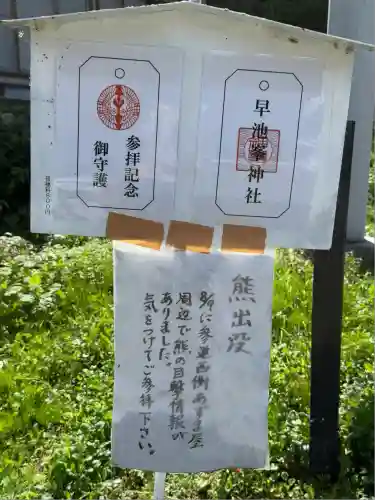 早池峯神社
参拝記念
御守護
熊出没
8/9に参道西側あずま屋
周辺で熊の目撃情報が
ありました。
気をつけてご参拝下さい。